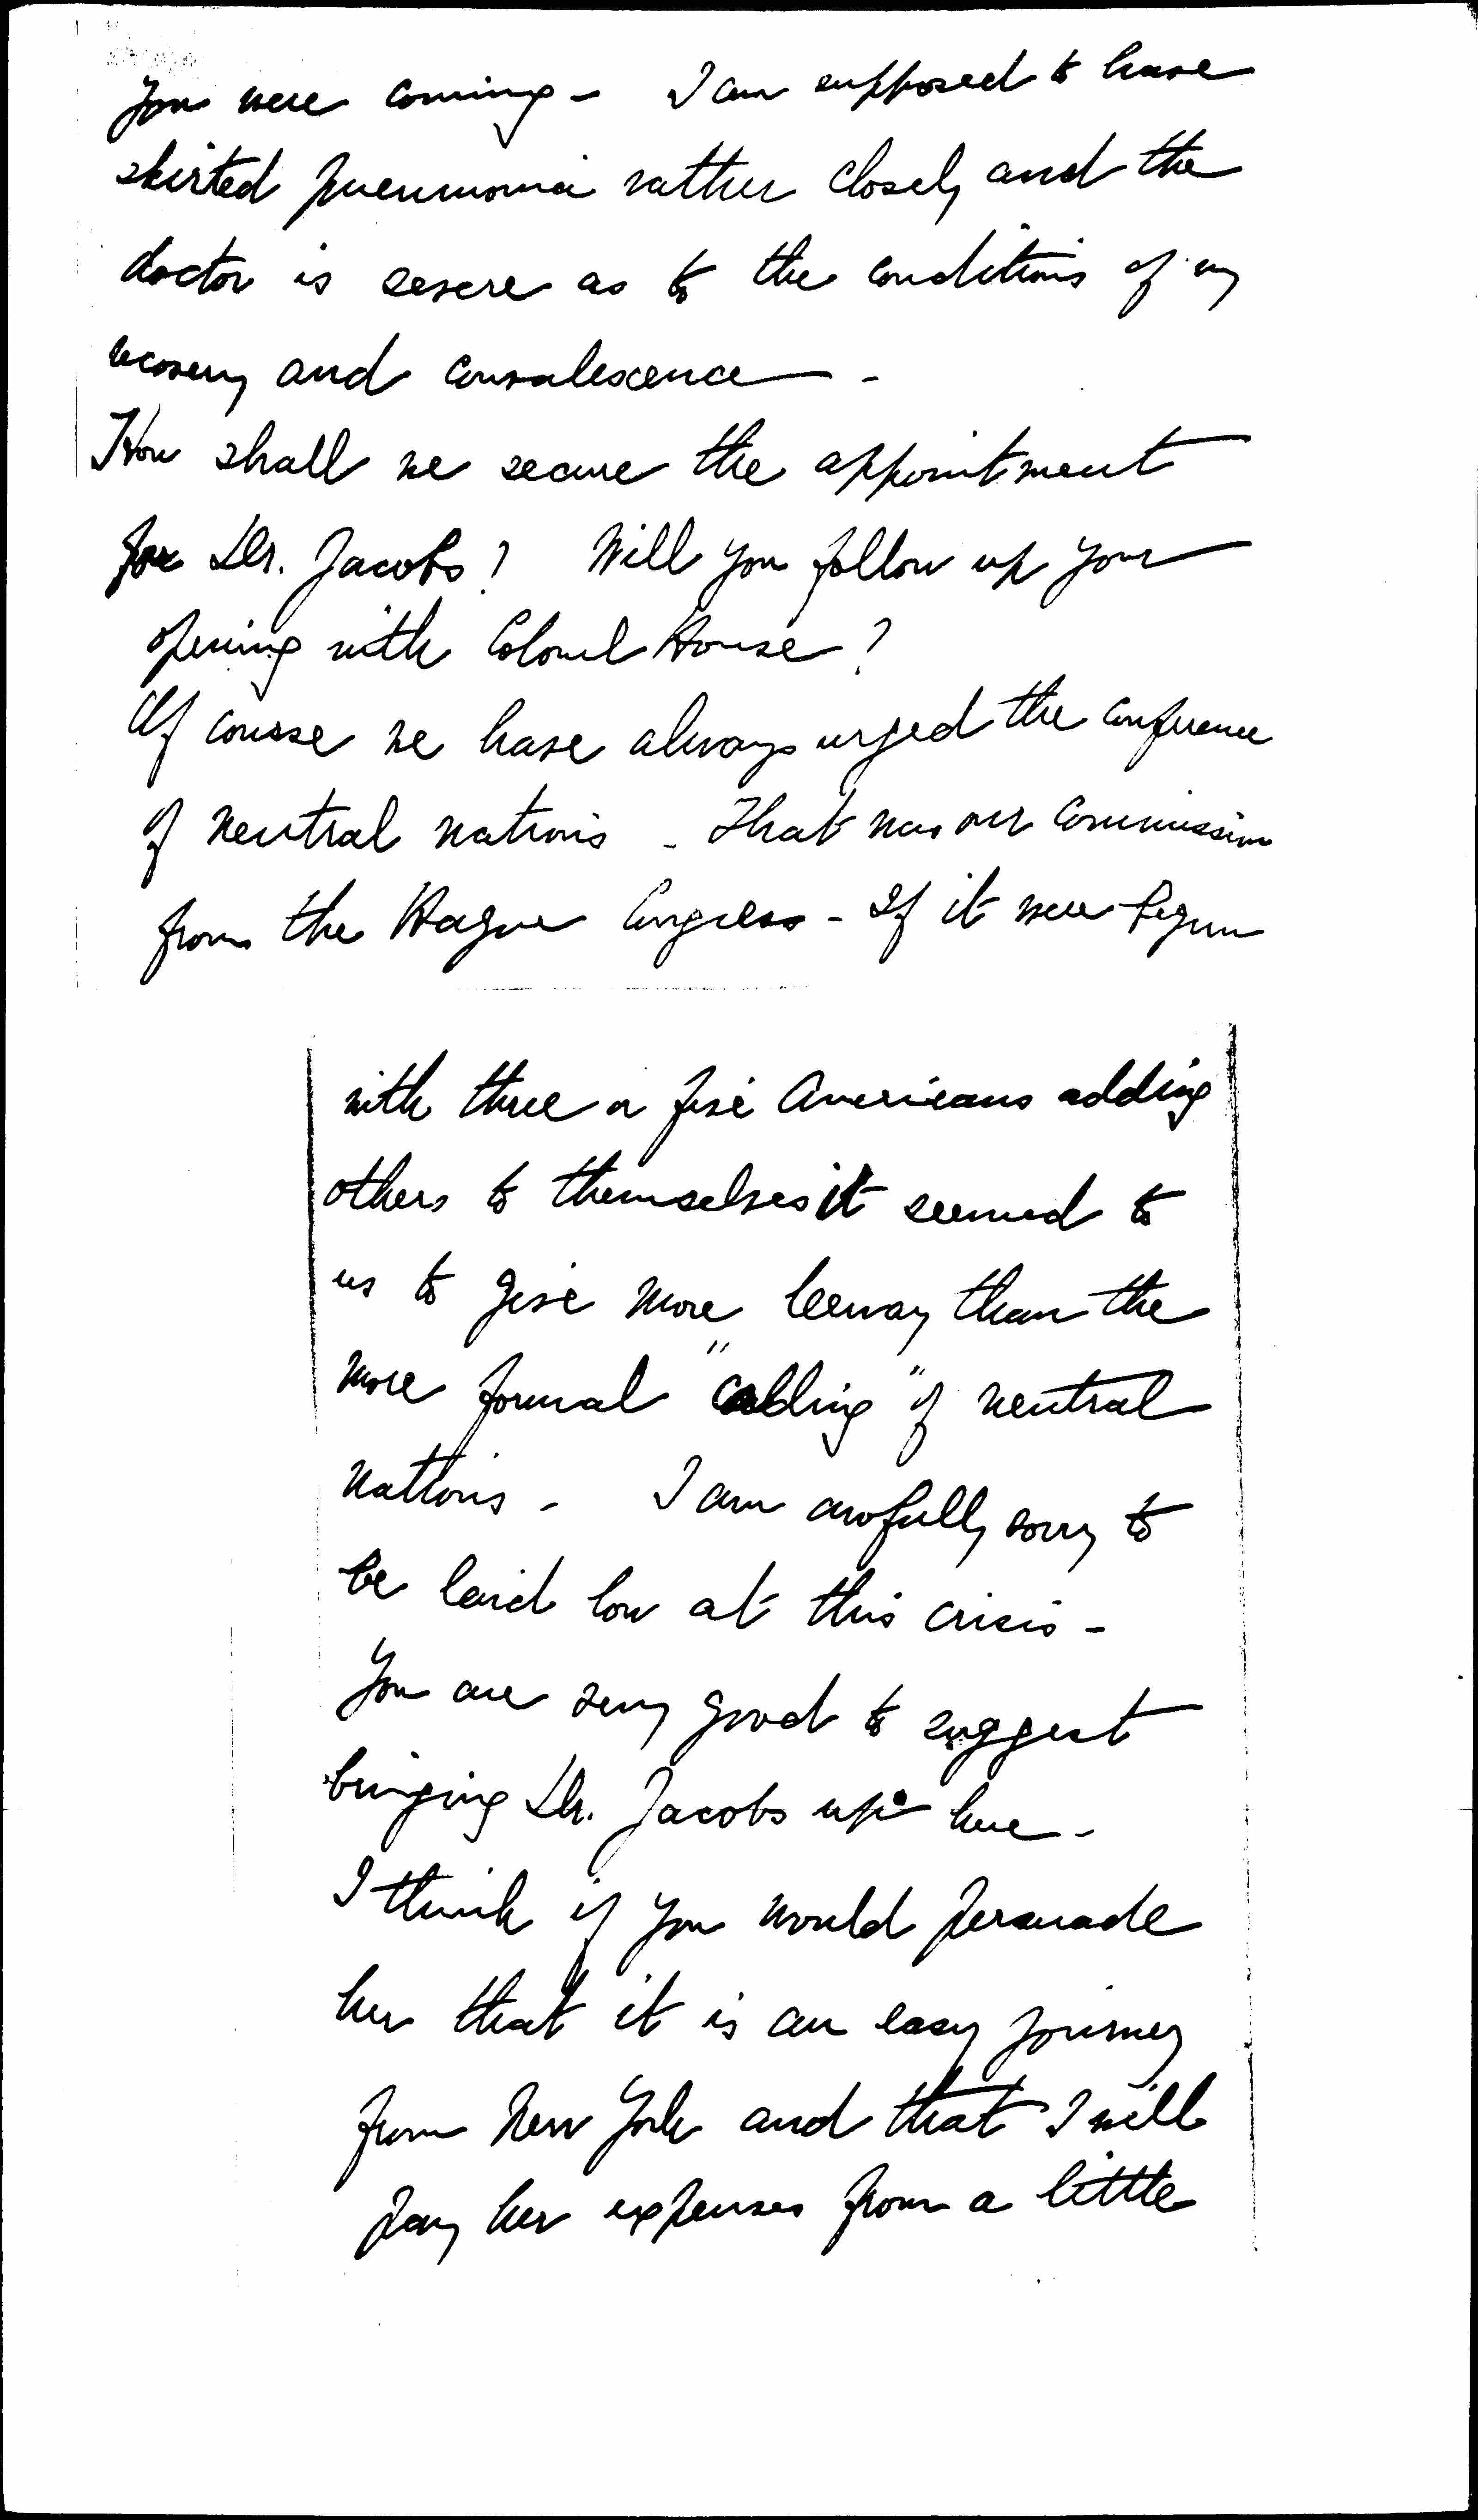 you were coming - I am supposed to have
skirted pneumonia rather closely and the
doctor is severe as to the conditions of my
recovery and convalescence -
How shall we secure the appointment
for Dr. Jacobs? Will you follow up your
opening with Colonel House?
Of course we have always urged the conference
of neutral nations - That was our commission
from the Hague Congress - If it were begun
with three or five Americans adding
others to themselves it seemed to
us to give more leeway than the
more formal "calling" of neutral
nations - I am awfully sorry to
be laid low at this crisis -
You are very good to suggest
bringing Dr. Jacobs up here -
I think if you would persuade
her that it is an easy journey
from New York and that I will
pay her expenses from a little